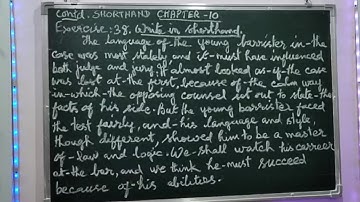 Cont'd. SHORTHAND CHAPTER-10
Exercise:38. Write in shorthand.
The language-of-the young barrister, in-the
case was most stately and it-must have influenced
both judge and jury. It almost looked as-if-the case
was lost at-the-first, because-of the calm way
in-which-the opposing counsel set out to-state-the
facts of his side. But the young barrister faced
the test fairly, and-his language and style,
though different, showed him to-be a master
of-law and logic. We-shall watch his career
at-the bar, and we think he-must succeed
because of-his abilities.